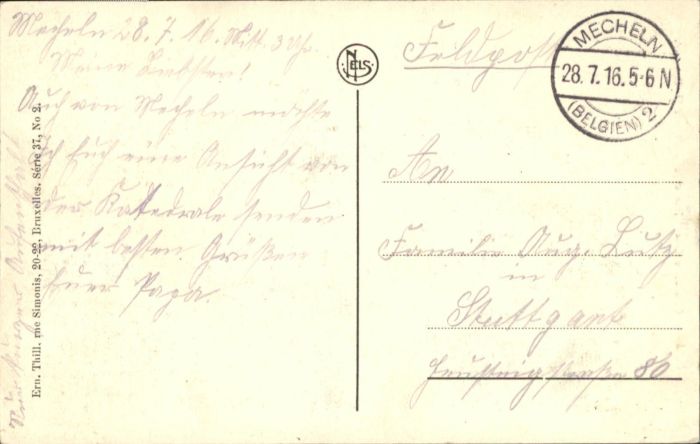 Mecheln 28. 7. 16. Mitt. 3 Uhr.
Meine Liebsten!
Auch von Mecheln möchte
ich Euch eine Ansicht von
der Katedrale senden
mit besten Grüßen
Euer Papa.
Ern. Thill. rue Simonis, 20-22. Bruxelles. Série 37, No 2.
NELS
Feldpost
MECHELN
28. 7. 16. 5-6 N
(BELGIEN) 2
An
Familie Aug. Lutz
in
Stuttgart
80